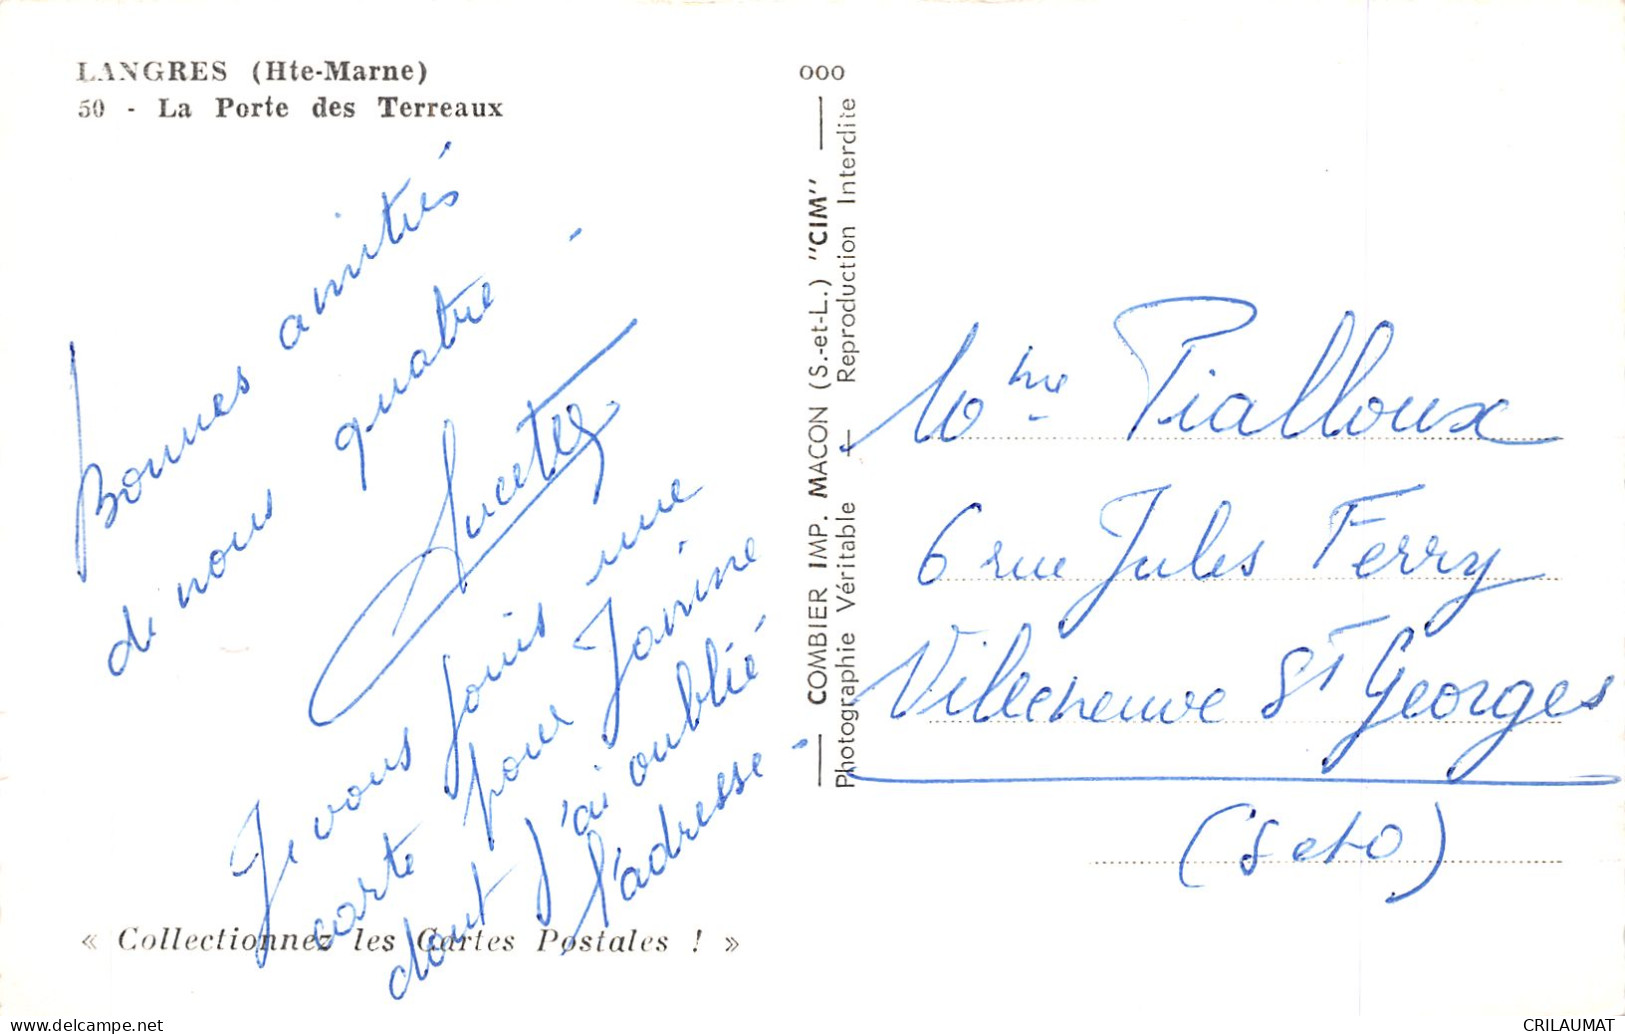 LANGRES (Hte-Marne)
50 - La Porte des Terreaux
Bonnes amitiés
de nous quatre -
Je vous joins une
carte pour Janine
dont j'ai oublié
l'adresse -
« Collectionnez les Cartes Postales ! »
000
COMBIER IMP. MACON (S.-et-L.) "CIM"
Photographie Véritable - Reproduction Interdite
Mme Pialloux
6 rue Jules Ferry
Villeneuve St Georges
(S et O)
www.delcampe.net
CRILAUMAT